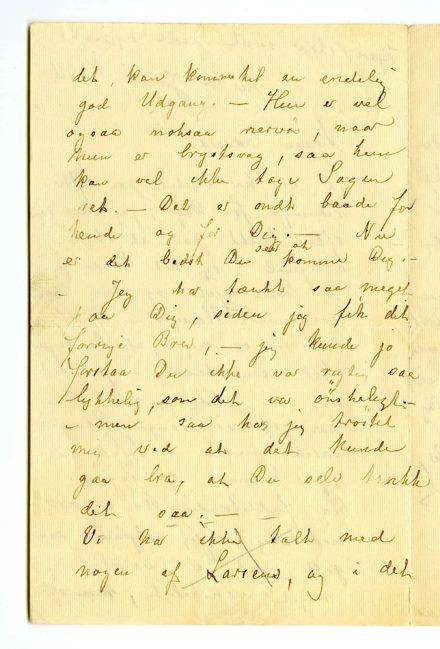 det, kan komme til en endelig
god Udgang. — Hun er vel
ogsaa noksaa nervøs, naar
hun er brystsvag, saa hun
kan vel ikke tage Sagen
ret. — Det er ondt baade for
hende og for Dig. — Nu
er det bedst Du ser at komme Dig. —
— Jeg har tænkt saa meget
paa Dig, siden jeg fik det
forrige Brev, — jeg kunde jo
forstaa Du ikke var rigtig saa
lykkelig, som det var önskeligt. —
— men saa har jeg tröstet
mig ved at det kunde
gaa bra, at Du selv trodde
det saa. — —
Vi har ikke talt med
nogen af Larsens, og i det